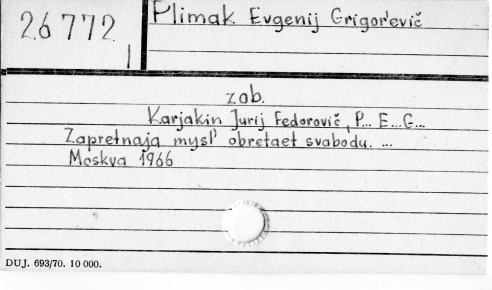 26772
Plimak Evgenij Grigor'evič
zob.
Karjakin Jurij Fedorovič, P... E...G...
Zapretnaja mysl' obretaet svabodu. ...
Moskva 1966
DUJ. 693/70. 10 000.